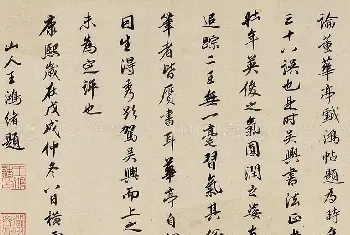 論董華亭戲鴻帖題為時年
三十八誤也此時吳興書法正
壯年英俊之氣圓潤之姿
追踪二王無一毫習氣其
筆者皆贋書耳華亭自
因生得秀欲駕吳興而上之
未為定評也
康熙歲在戊戌仲冬八日橫雲
山人王鴻緒題